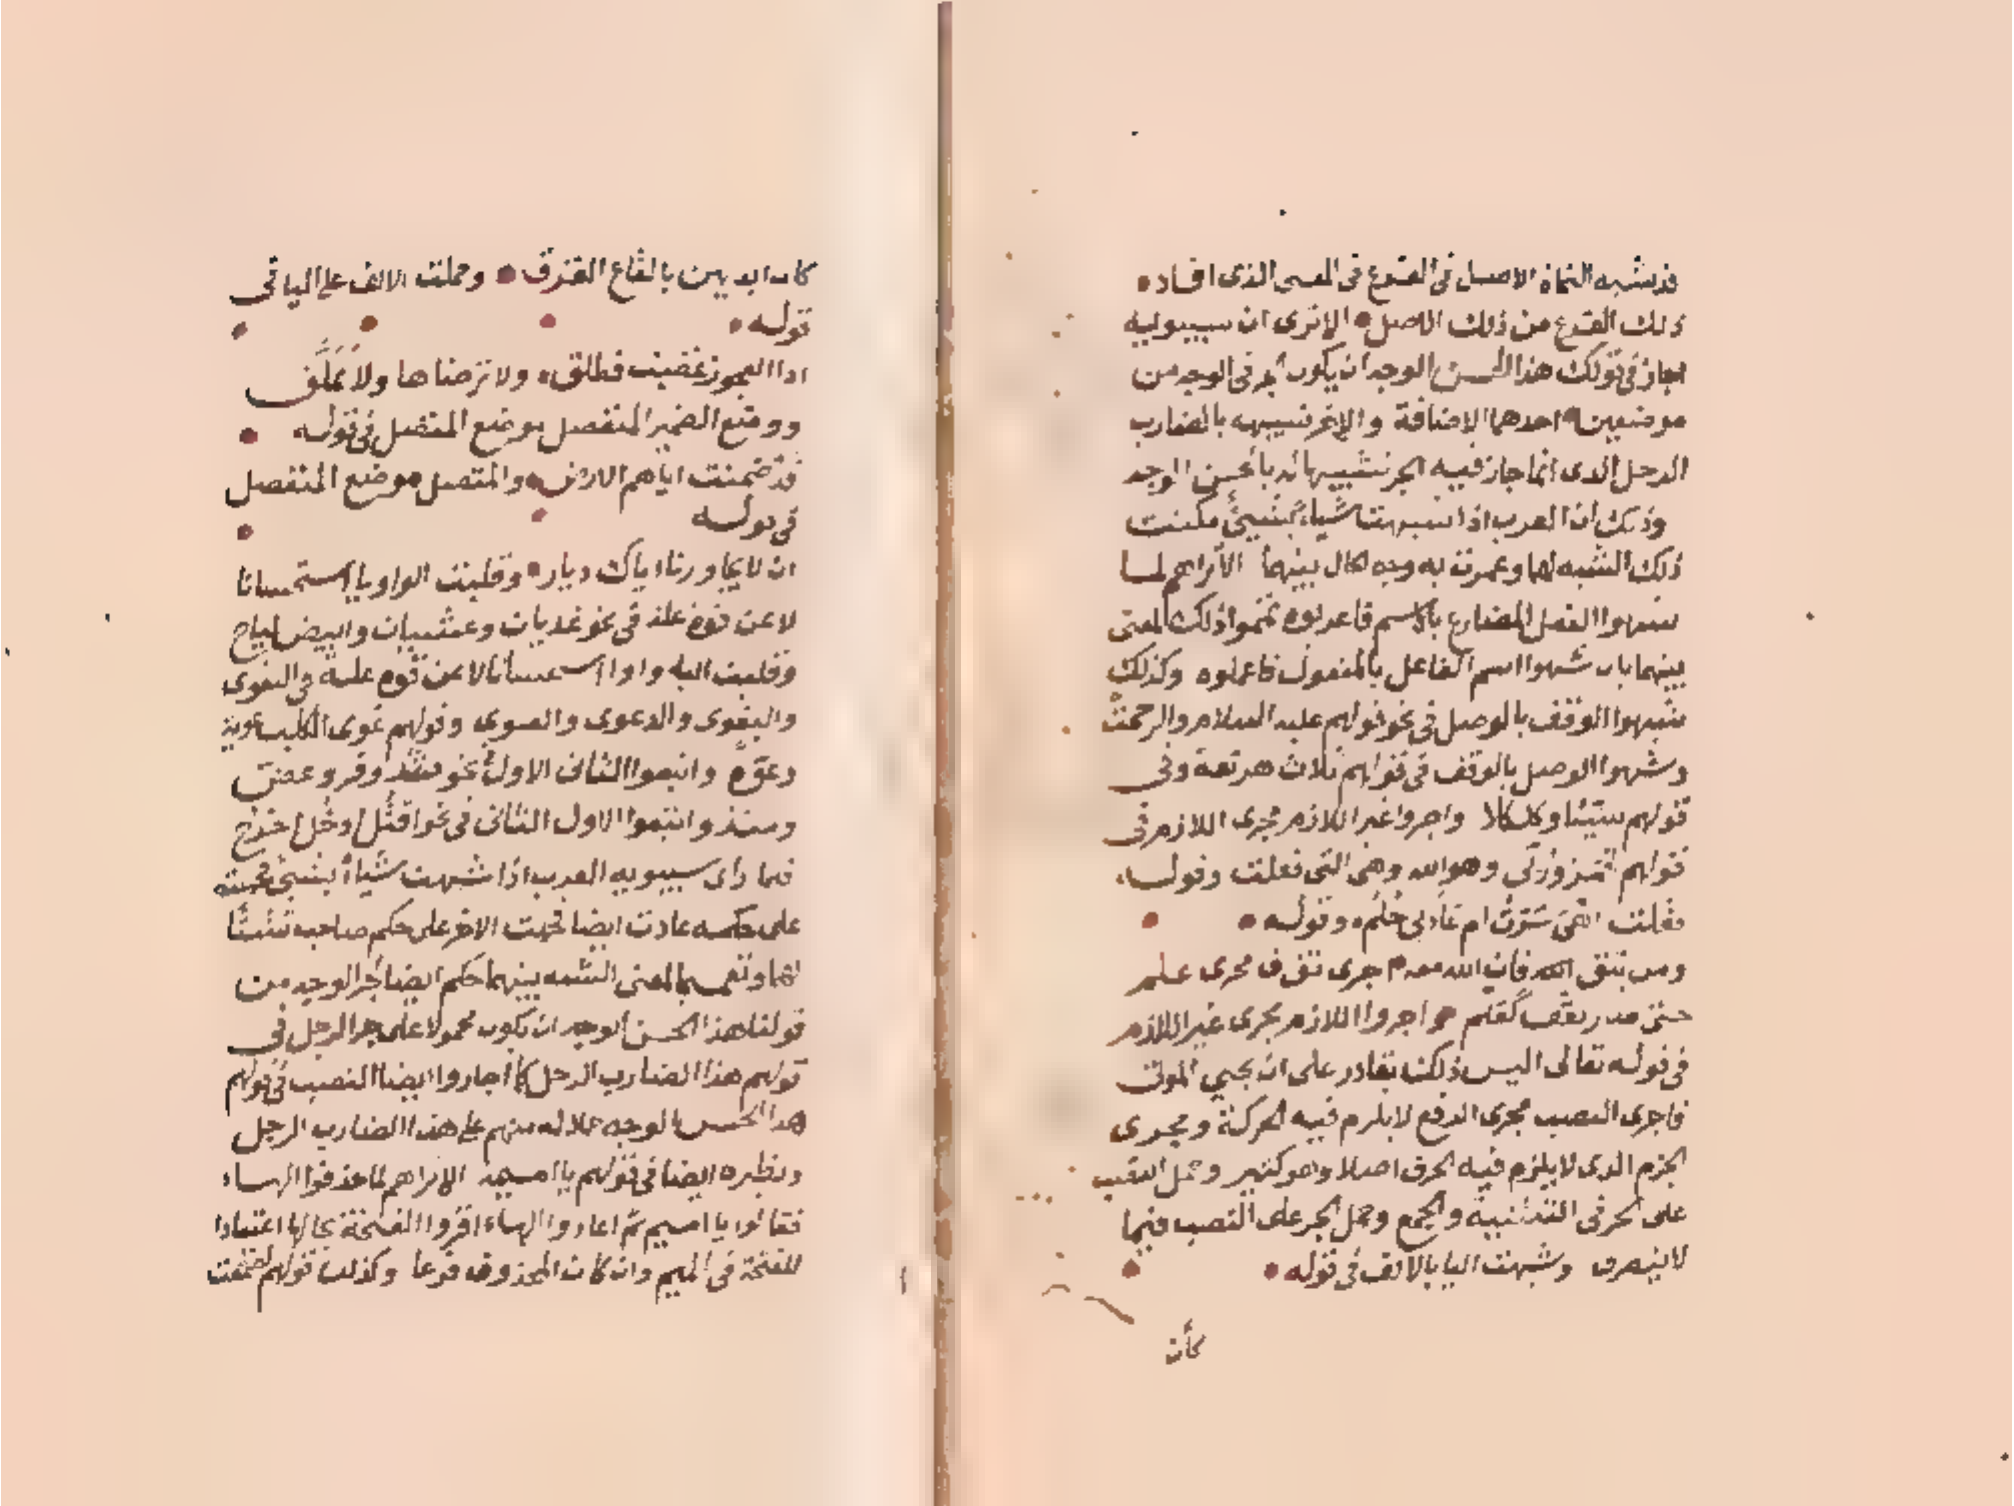 قد تشبه النحاة الاصل فى الفرع فى المعنى الذى افاده
ذلك الفرع من ذلك الاصل الا ترى ان سيبويه
اجاز فى قولك هذا الحسن الوجه ان يكون الجر فى الوجه من
موضعين احدهما الاضافة والاخر تشبيهه بالضارب
الرجل الذى انما جاز فيه الجر تشبيها له بالحسن الوجه
وذلك ان العرب اذا شبهت شياء بشيئ مكنت
ذلك الشبه لهما وعمرت به وجه الحال بينهما الا تراهم لما
شبهوا الفعل المضارع بالاسم فاعربوه تمموا ذلك المعنى
بينهما بان شبهوا اسم الفاعل بالمفعول فاعملوه وكذلك
شبهوا الوقف بالوصل فى نحو قولهم عليه السلام والرحمت
وشبهوا الوصل بالوقف فى قولهم ثلاث هربعة وفى
قولهم سبسبا وكلكلا واجروا غير اللازم مجرى اللازم فى
قولهم وهو الله وهى التى فعلت وقوله
فقلت اهى سرت ام عادنى حلم وقوله
ومن يتق الله فان الله معه جرى تق ف مجرى علم
حتى صار يقف كعلم واجروا اللازم مجرى غير اللازم
فى قوله تعالى اليس ذلك بقادر على ان يحيي الموتى
فاجرى النصب مجرى الرفع لا يلزم فيه الحركة ومجرى
الجزم الذى لا يلزم فيه الحرف اصلا وهو كثير وحمل النصب
على الجر فى التثنية والجمع وحمل الجر على النصب فيما
لا ينصرف وشبهت اليا بالالف فى قوله
كأن
كان ايديهن بالقاع القرق وحملت الالف على اليا فى
قوله
اذا العجوز غضبت فطلق ولا ترضاها ولا تملق
ووضع الضمير المنفصل موضع المتصل فى قوله
قد ضمنت اياهم الارض والمتصل موضع المنفصل
فى قوله
ان لا يجاورنا الاك ديار وقلبت الواو يا استحسانا
لا عن قوة علة فى نحو غديان وعشيان وابيض لياح
وقلبت اليا واوا استحسانا لا عن قوة علة فى التقوى
والبقوى والدعوى والفتوى وقولهم عوى الكلب عوية
وعوة واتبعوا الثانى الاول نحو شد وفر وعض
ومنذ واتبعوا الاول الثانى فى نحو اقتل ادخل اخرج
فلما رأى سيبويه العرب اذا شبهت شياأ بشئ حملته
على حكمه عادت ايضا فحملت الاخر على حكم صاحبه تثبيتا
لهما وتتميما لمعنى الشبه بينهما حكم ايضا لجر الوجه من
قولنا هذا الحسن الوجه ان يكون محمولا على جر الرجل فى
قولهم هذا الضارب الرجل كما اجازوا ايضا النصب فى قولهم
هذا الحسن الوجه حملا له منهم على هذا الضارب الرجل
ونظيره ايضا فى قولهم يا اميمة الا تراهم لما حذفوا الهاء
فقالوا يا اميم ثم اعادوا الهاء اقروا الفتحة بحالها اعتيادا
للفتحة فى الميم وان كان الحذف فرعا وكذلك قولهم اجتمعت